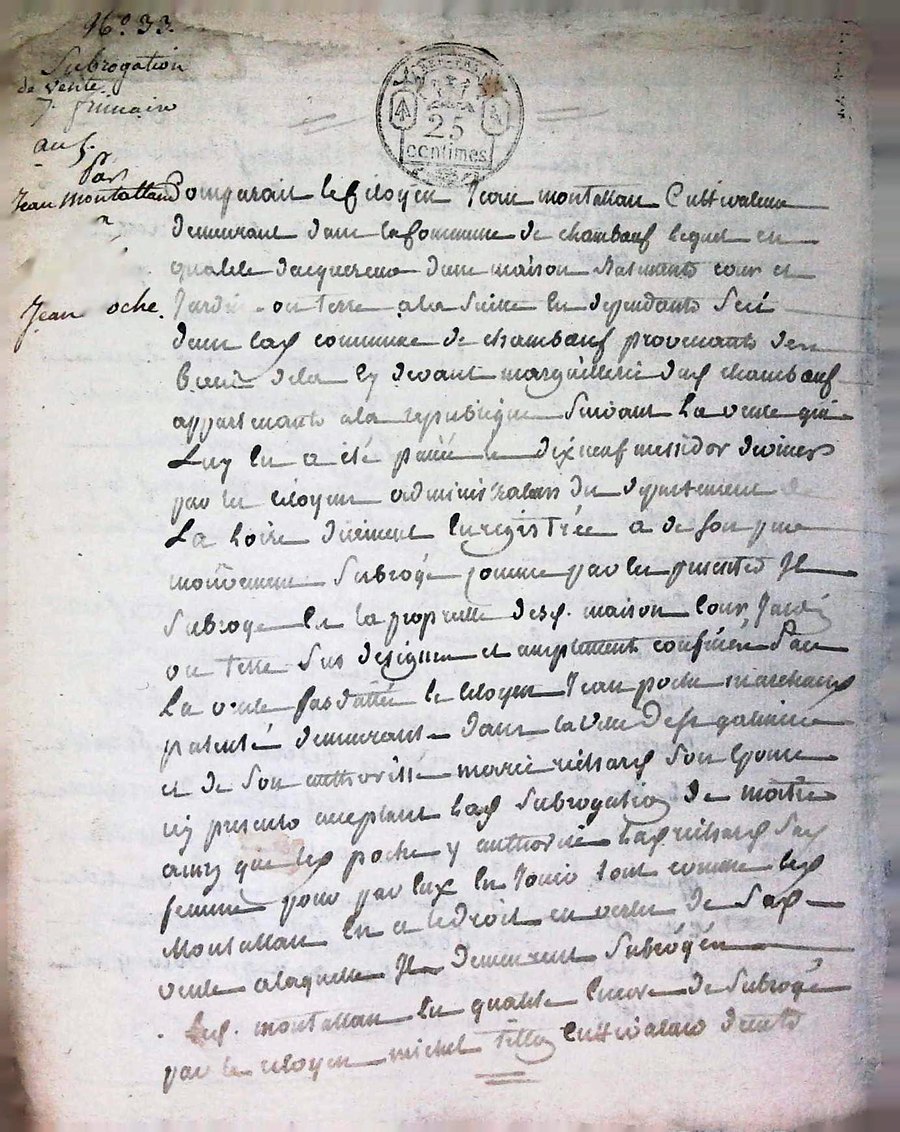 N.° 33.
Subrogation
de vente
7 frimaire
an 5.
Par
Jean Montallan
Jean oche.
25
centimes
Comparait le Citoyen Jean montallan Cultivateur
demeurant dans la Commune de chambeuf lequel en
qualité dacquereur dune maison Batiments cour et
Jardin ou terre ala Suitte en dependants Scis
dans lad commune de chambeuf provenants des
biens dela Cy devant marguillerie dud chambeuf
appartenants ala republique Suivant La vente qui
Luy En a été passée le dixneuf messidor dernier
par les citoyens administrateurs du departement de
La Loire duement Enregistrée a de son pure
mouvement Subrogé comme par les presentes Il
Subroge En la proprieté desd. maison Cour Jardin
ou terre Sus designés et amplement confinés dans
La vente Susdattée le Citoyen Jean poche marchand
patenté demeurant dans la ville de galmier
et de Son authorité marie richard Son Epouse
icy presents acceptant lad Subrogation de moitié
avec que led poche y authorise lad richard Sad
femme pour par Eux En Jouir tout comme led
Montallan En a le droit en vertu de Sad
vente alaquelle Ils demeurent Subrogés
Led. montallan En qualité Encore de Subrogé
par le citoyen michel Cultivateur